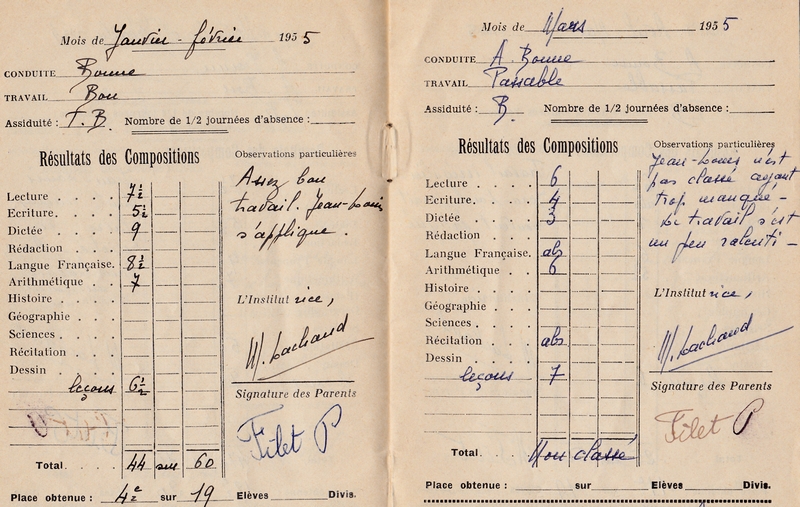 Mois de Janvier - février 1955
CONDUITE Bonne
TRAVAIL Bon
Assiduité : T. B. Nombre de 1/2 journées d'absence :
Résultats des Compositions
Observations particulières
Lecture . . . . 7 1/2
Ecriture . . . . 5 1/2
Dictée . . . . 9
Rédaction . . . .
Langue Française. 8 1/2
Arithmétique . . 7
Histoire . . . .
Géographie . . .
Sciences . . . .
Récitation . . .
Dessin . . . .
leçons 6 1/2
Total. . . . 44 sur 60
Assez bon
travail. Jean-Louis
s'applique.
L'Institutrice,
M. Lachaud
Signature des Parents
Filet P
Place obtenue : 4e sur 19 Elèves Divis.
Mois de Mars 1955
CONDUITE A. Bonne
TRAVAIL Passable
Assiduité : B Nombre de 1/2 journées d'absence :
Résultats des Compositions
Observations particulières
Lecture . . . . 6
Ecriture. . . . 4
Dictée . . . . 3
Rédaction . . . .
Langue Française. abs
Arithmétique . . 6
Histoire . . . .
Géographie . . .
Sciences . . . .
Récitation . . . abs
Dessin . . . .
leçons 7
Total. . . . Non classé
Jean-Louis n'est
pas classé ayant
trop manqué -
Le travail s'est
un peu ralenti -
L'Institutrice,
M. Lachaud
Signature des Parents
Filet P
Place obtenue : sur Elèves Divis.